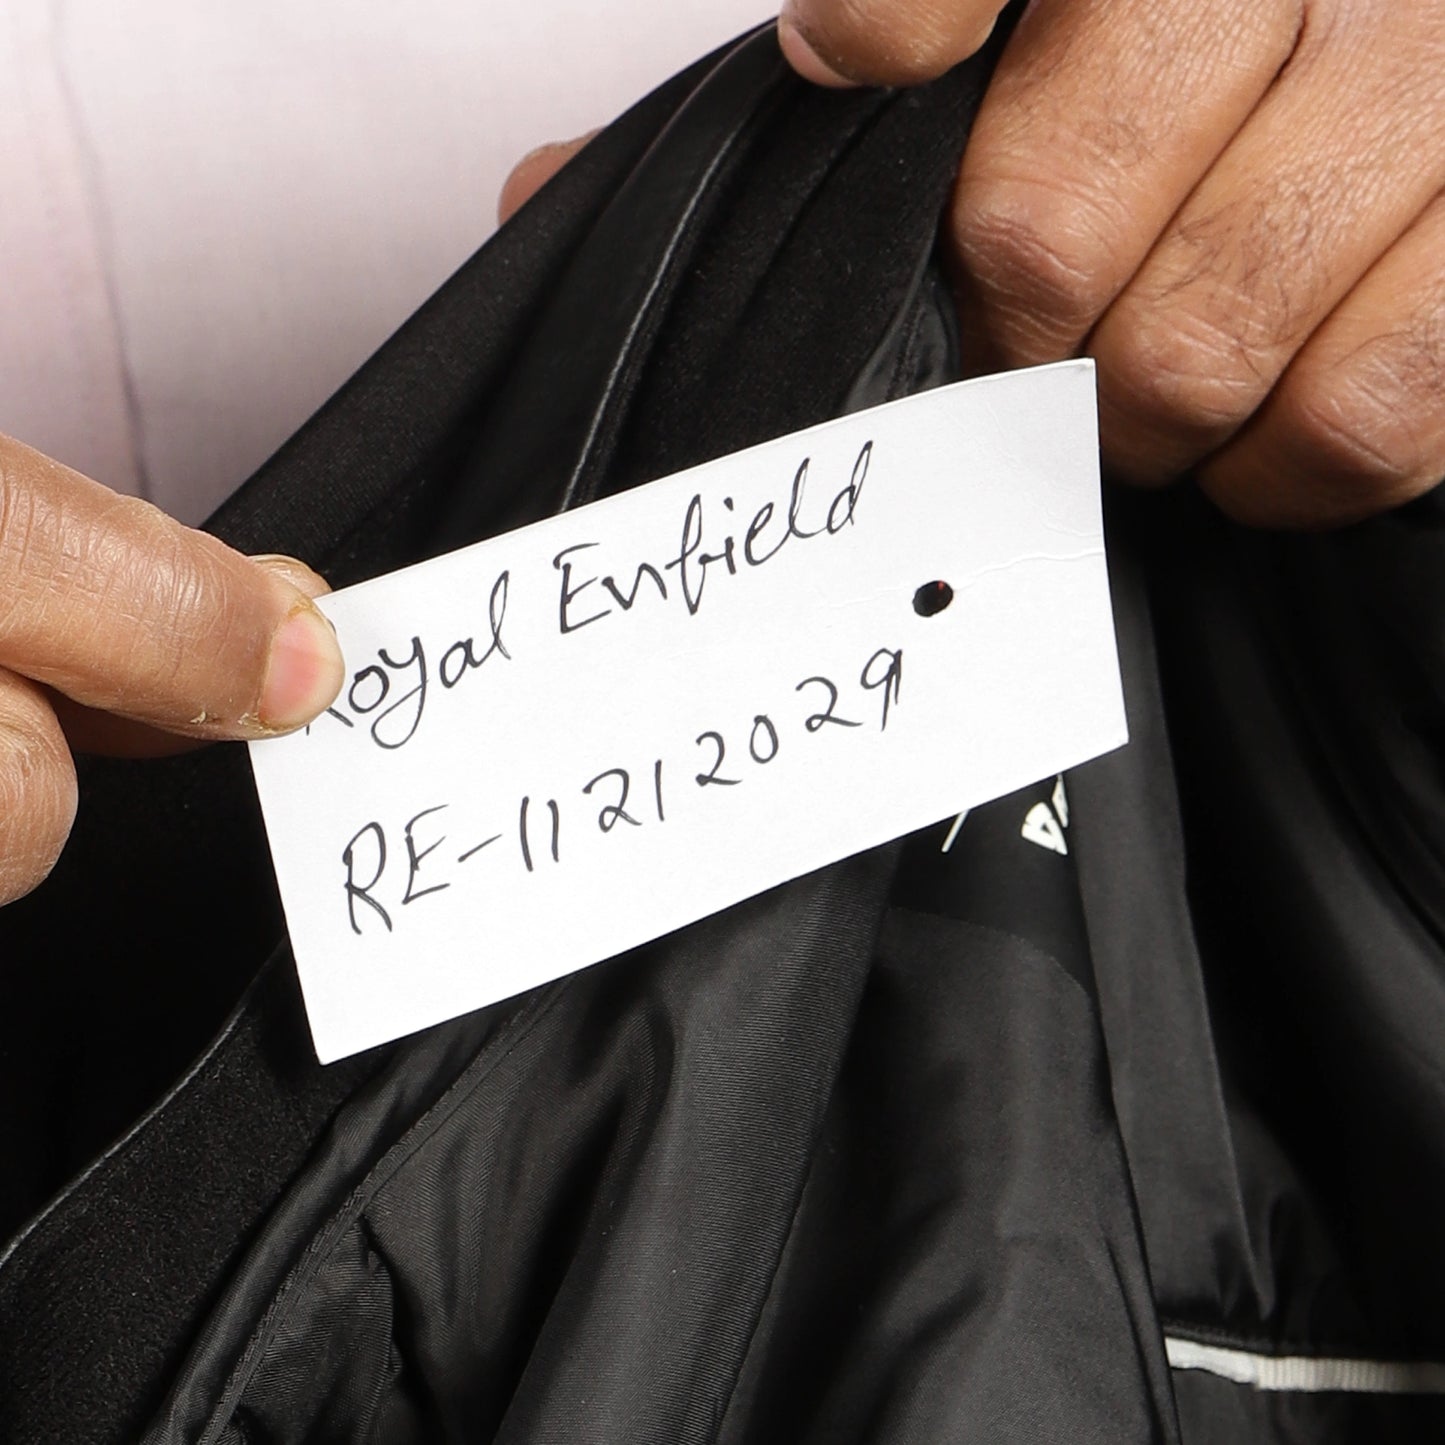 Royal Enfield
RE-112 12029